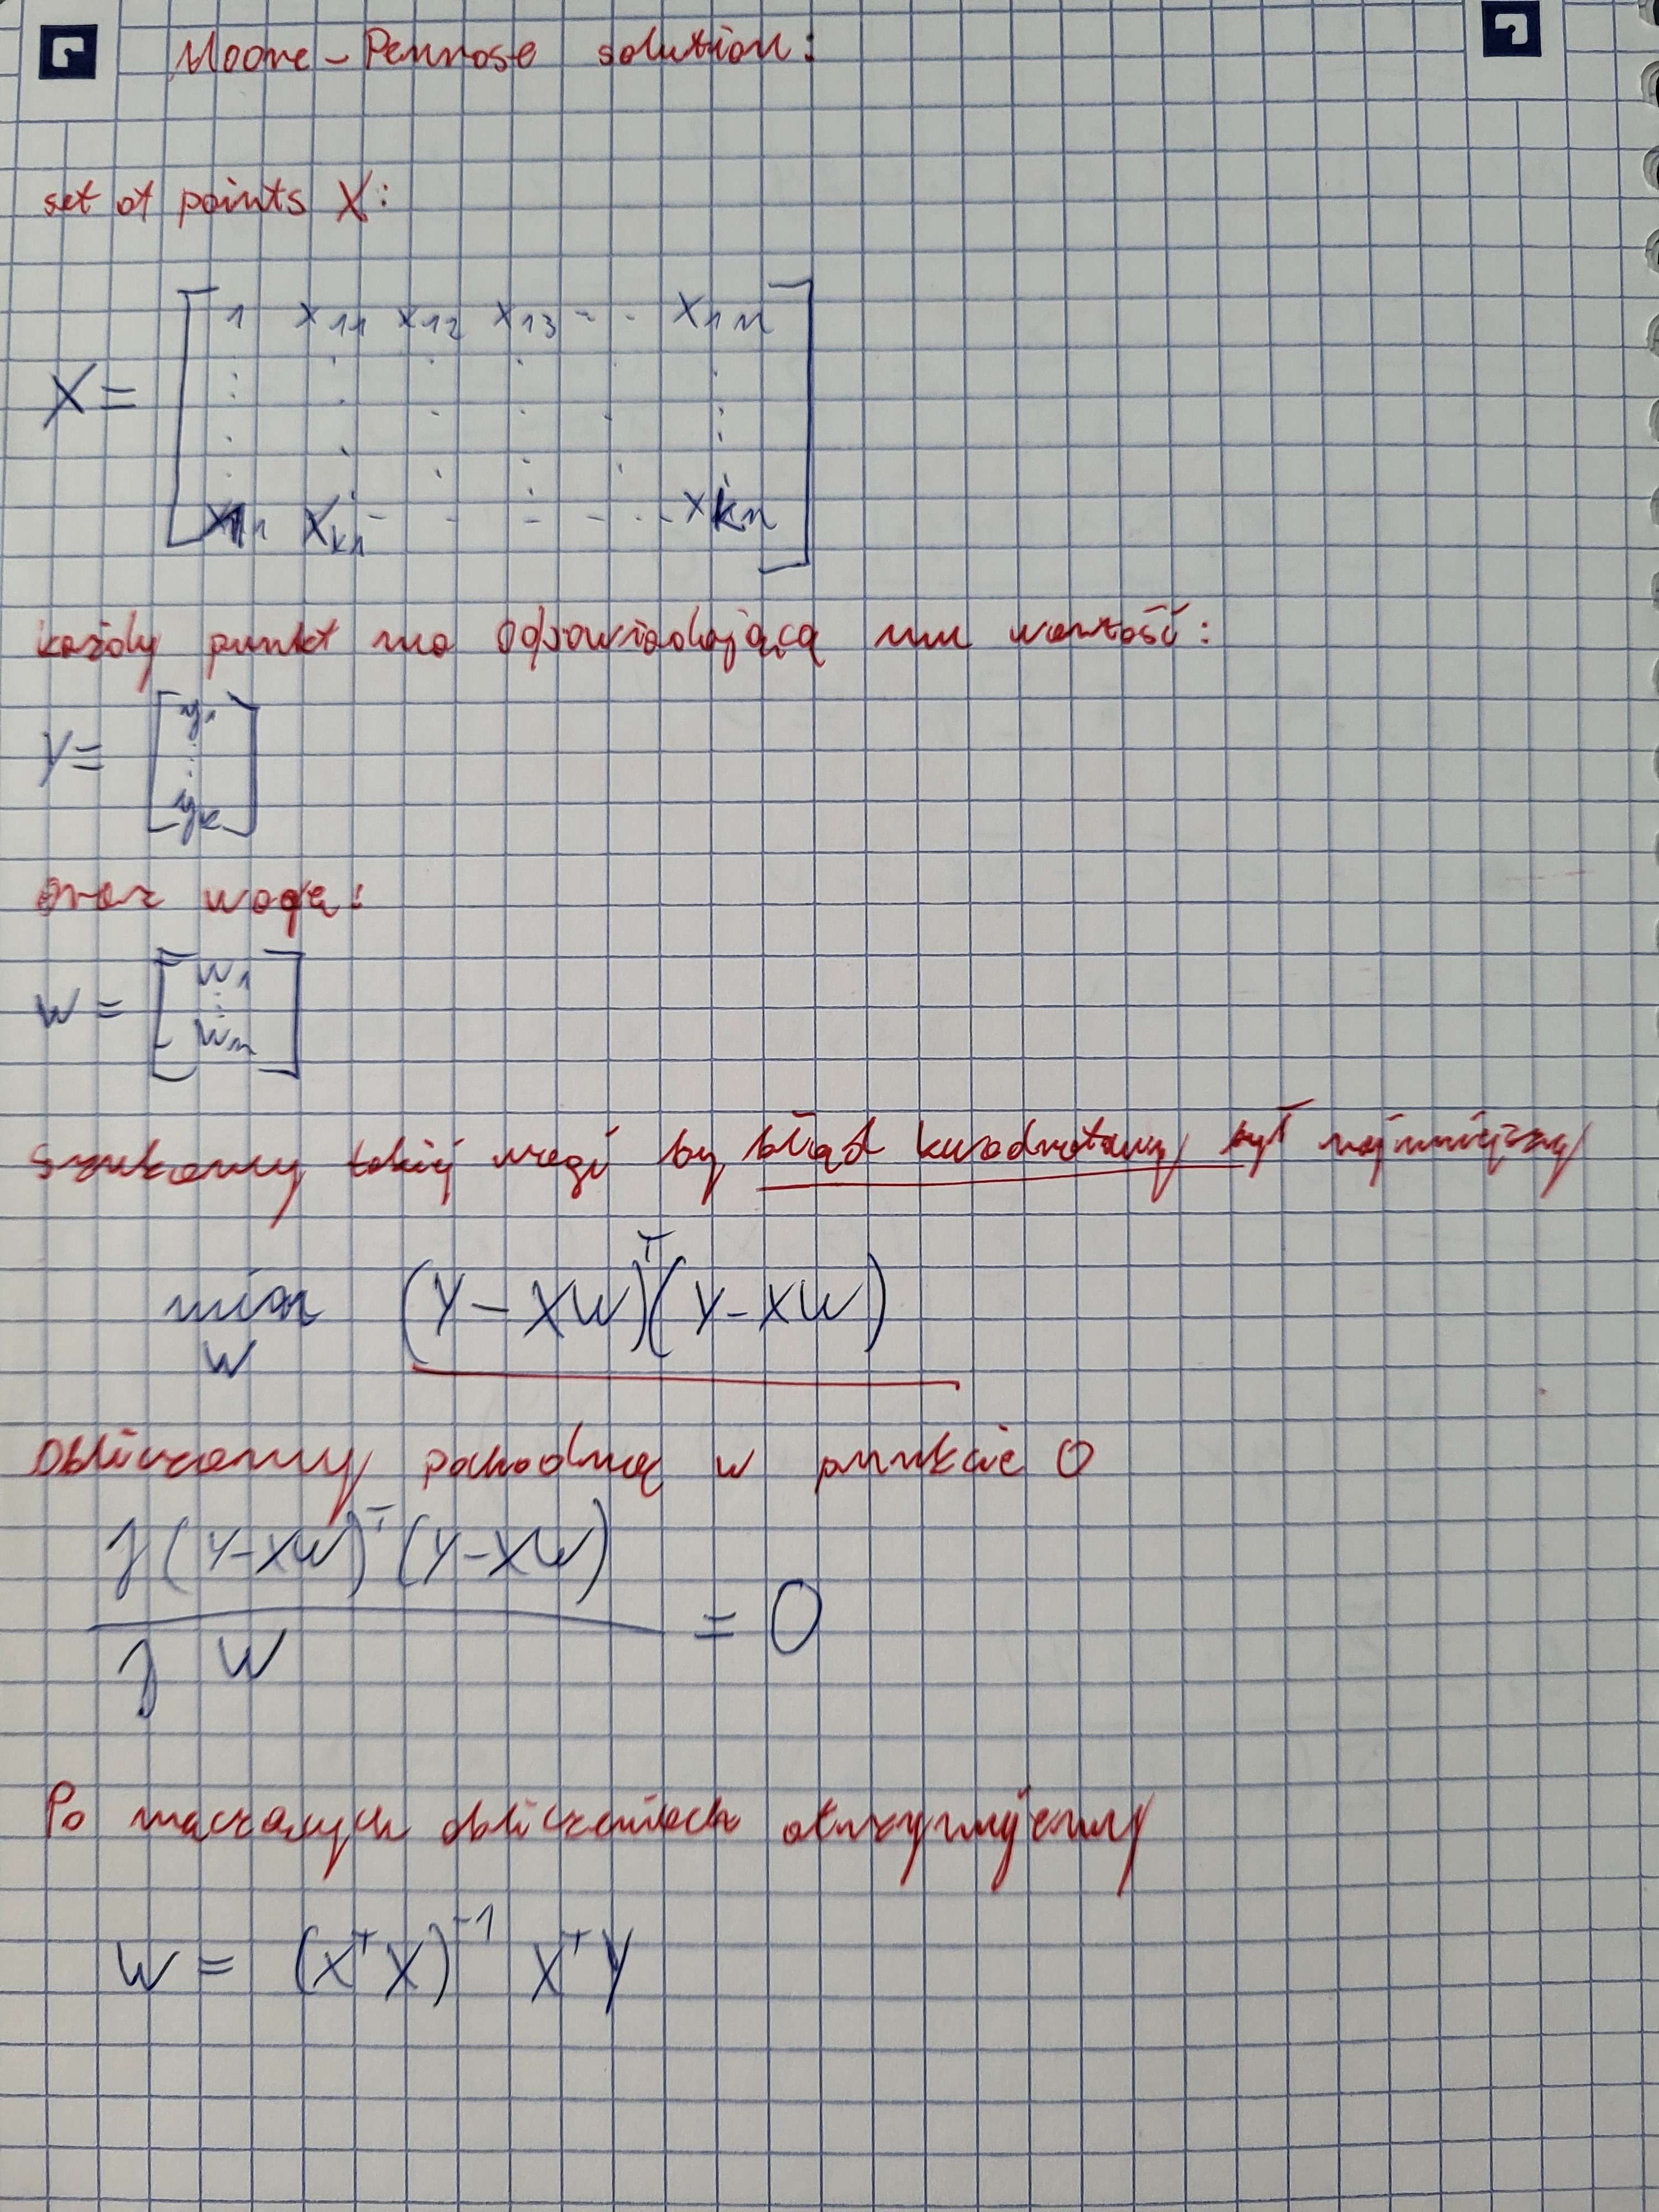 Moore-Penrose solution:
set of points X:
X = [ 1 x11 x12 x13 - - x1n
⋮
1 xk1 - - - - - xkn ]
każdy punkt ma odpowiadającą mu wartość:
Y = [ y1 ⋮ yk ]
oraz wagę:
W = [ w1 ⋮ wn ]
Szukamy takiej wagi by błąd kwadratowy był najmniejszy
min (Y - XW)^T (Y - XW)
W
Obliczamy pochodną w punkcie 0
∂(Y-XW)^T (Y-XW)
/ ∂ W = 0
Po męczących obliczeniach otrzymujemy
W = (X^T X)^-1 X^T Y